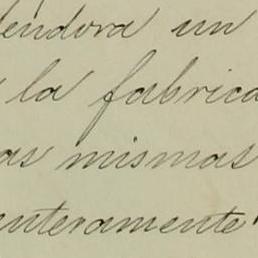 endora un
la fabrica
as mismas
enteramente"